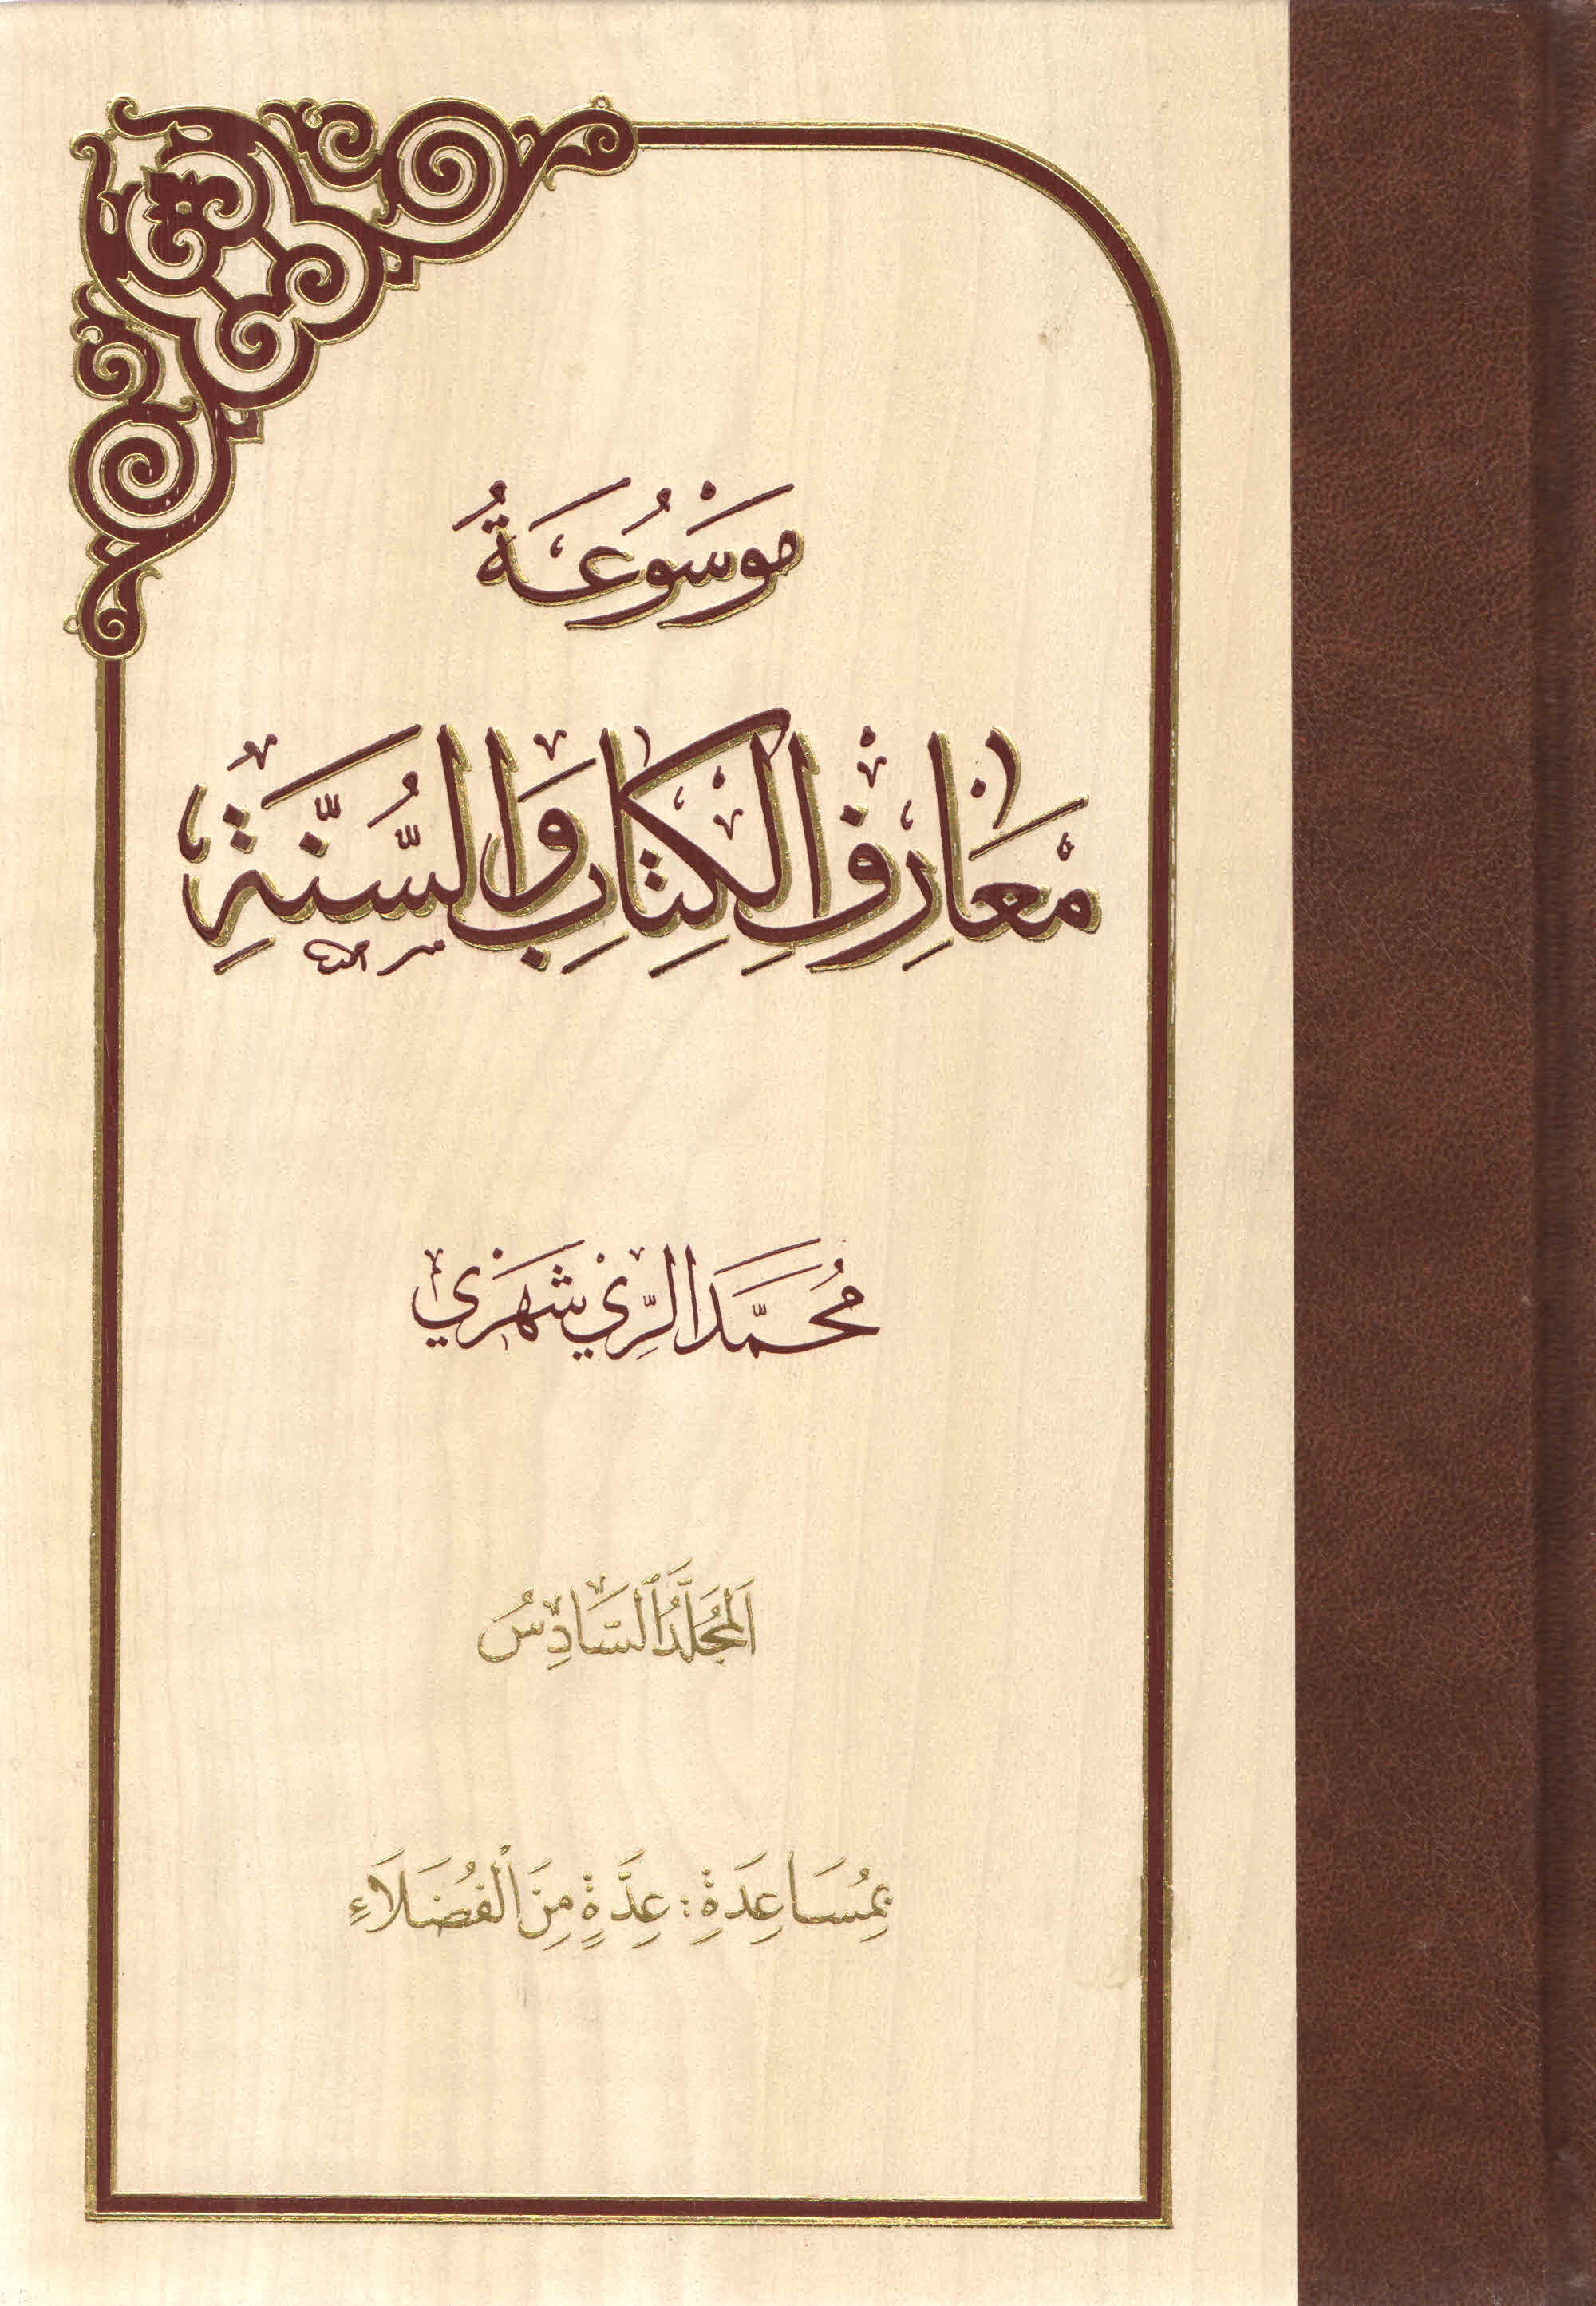 مَوْسُوعَةُ
مَعَارِفِ الْكِتَابِ وَالسُّنَّةِ
مُحَمَّد الرِّيْ شَهْرِي
اَلْمُجَلَّدُ السَّادِسُ
بِمُسَاعِدَةِ: عِدَّةٍ مِنَ الْفُضَلَاءِ